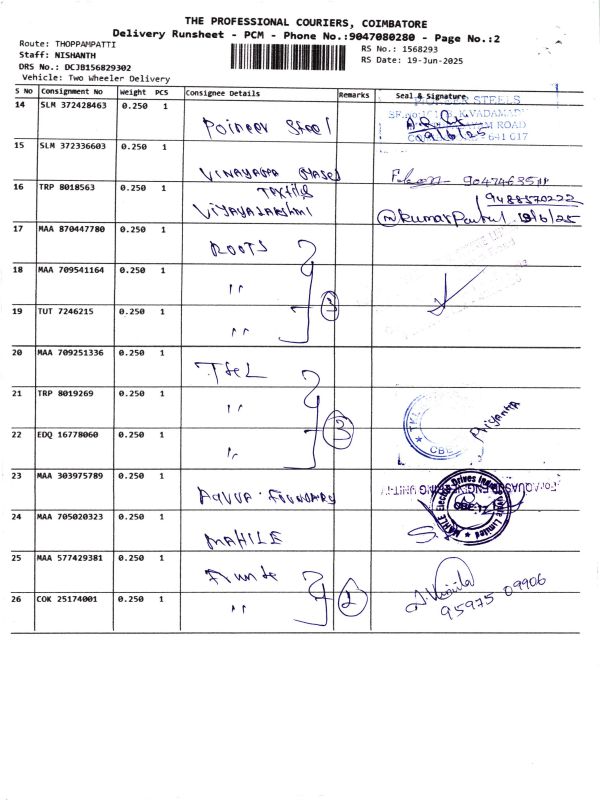 THE PROFESSIONAL COURIERS, COIMBATORE
Delivery Runsheet - PCM - Phone No.:9047080280 - Page No.:2
Route: THOPPAMPATTI
Staff: NISHANTH
DRS No.: DCJB156829302
Vehicle: Two Wheeler Delivery
RS No.: 1568293
RS Date: 19-Jun-2025
S No Consignment No Weight PCS Consignee Details Remarks Seal & Signature
14 SLM 372428463 0.250 1 Poineer Steel
PIONEER STEELS
K.VADAMADURAI
ROAD
641 017
19/6/25
15 SLM 372336603 0.250 1 VINAYAGA
9047463511
16 TRP 8018563 0.250 1 TEXTILES
VIJAYALAKSHMI
9488570222
19/6/25
17 MAA 870447780 0.250 1 ROOTS
18 MAA 709541164 0.250 1 "
19 TUT 7246215 0.250 1 " 3
20 MAA 709251336 0.250 1
21 TRP 8019269 0.250 1 "
Priyanka
22 EDQ 16778060 0.250 1 " 3
CBE
23 MAA 303975789 0.250 1 AQUUA FOUNDARY
For AQUASUB ENGINEERING UNIT-
24 MAA 705020323 0.250 1 MAHILE
MAHLE Electric Drives India Private Limited
25 MAA 577429381 0.250 1
26 COK 25174001 0.250 1 " 2
95975 09906